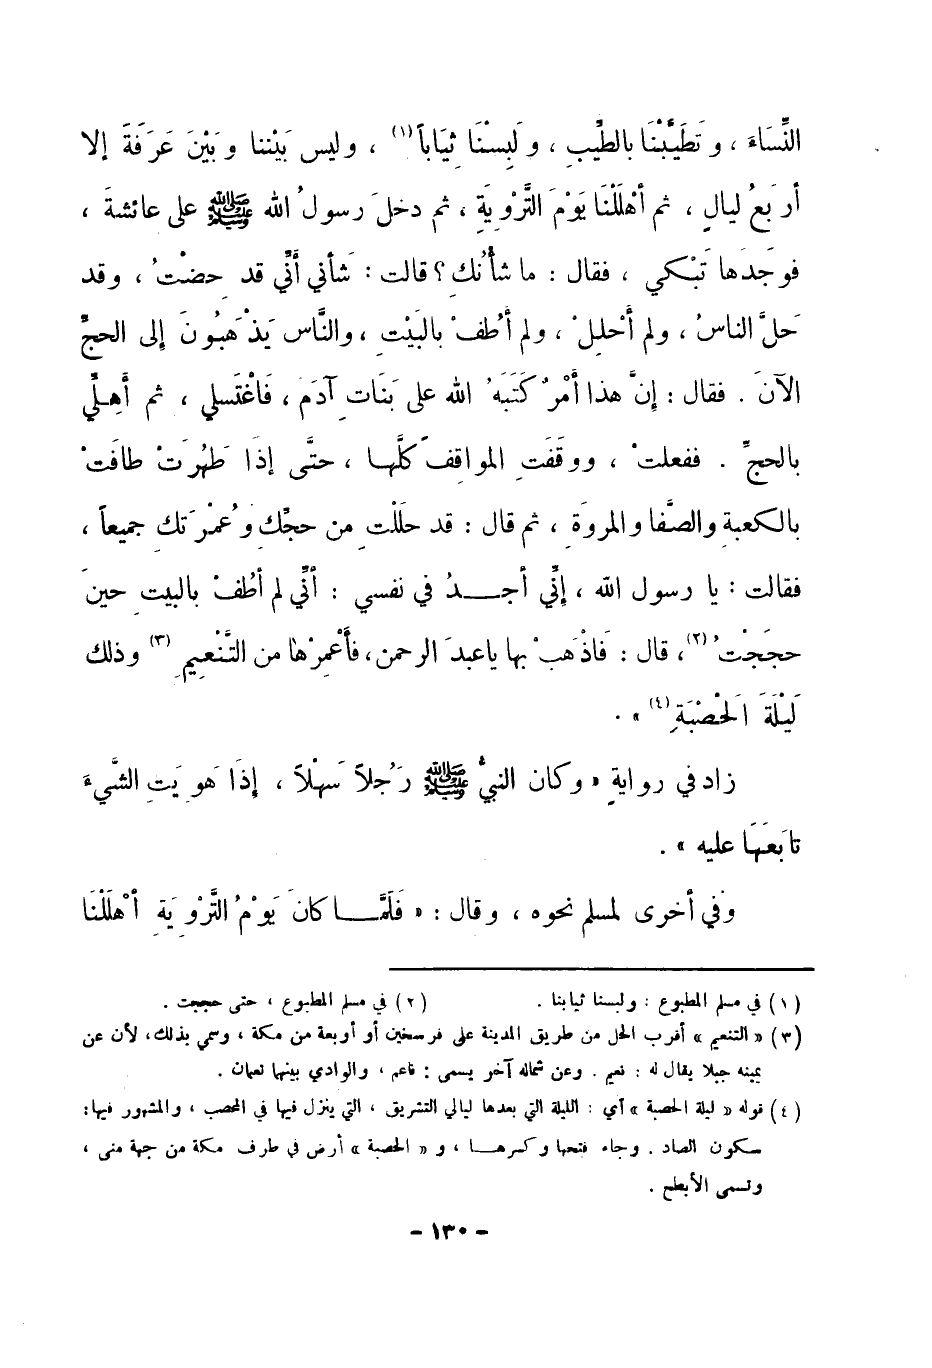 النِّسَاءَ ، وتَطَيَّبْنَا بالطِّيبِ ، ولَبِسْنَا ثِيَاباً(١) ، وليس بَيْننا وبَيْنَ عَرَفَةَ إلا
أربَعُ ليالٍ ، ثم أهْلَلْنَا يَوْمَ التَّرْوِيَةِ ، ثم دخلَ رسولُ الله ﷺ على عائشةَ ،
فوجَدَها تَبْكي ، فقال : ما شأنُكِ ؟ قالت : شَأني أنِّي قد حِضتُ ، وقد
حَلَّ الناسُ ، ولم أَحْلِلْ ، ولم أَطُفْ بالبَيْتِ ، والنَّاس يَذْهَبُونَ إلى الحجِّ
الآنَ . فقال : إنَّ هذا أَمْرٌ كَتَبَهُ الله على بَنَاتِ آدَمَ ، فَاغْتَسلي ، ثم أَهِلِّي
بالحجِّ . ففعلتْ ، ووقَفَت المواقِفَ كلَّها ، حتَّى إذَا طَهُرَتْ طافَتْ
بالكعبةِ والصَّفا والمروَةِ ، ثم قال : قد حلَلْتِ من حجِّكِ وعُمْرَتكِ جميعاً ،
فقالت : يا رسول الله ، إنِّي أجـــدُ في نفسي : أنِّي لم أَطُفْ بالبيتِ حينَ
حجَجْتُ(٢) ، قال : فَاذْهَبْ بها ياعبدَ الرحمن ، فأَعْمِرْها من التَّنْعِيمِ(٣) وذلك
لَيْلَةَ الَحْصْبَةِ(٤) » .
زاد في روايةٍ « وكان النبيُّ ﷺ رَجُلاً سَهْلاً ، إذَا هَوِيَتِ الشَّيءَ
تابَعَهَا عليه » .
وفي أخرى لمسلم نحوه ، وقال : « فَلَمَّـــا كانَ يَوْمُ التَّرْوِيَةِ أهْلَلْنَا
(١) في مسلم المطبوع : ولبسنا ثيابنا . (٢) في مسلم المطبوع ، حتى حججت .
(٣) « التنعيم » أقرب الحل من طريق المدينة على فرسخين أو أوبعة من مكة ، وسمي بذلك ، لأن عن
يمينه جبلا يقال له : نعيم . وعن شماله آخر يسمى : ناعم ، والوادي بينها نعمان .
(٤) قوله « ليلة الحصبة » أي : الليلة التي بعدها ليالي التشريق ، التي ينزل فيها في المحصب ، والمشهور فيها :
سكون الصاد . وجاء فتحها وكسرهـــا ، و « الحصبة » أرض في طرف مكة من جهة منى ،
وتسمى الأبطح .
- ١٣٠ -